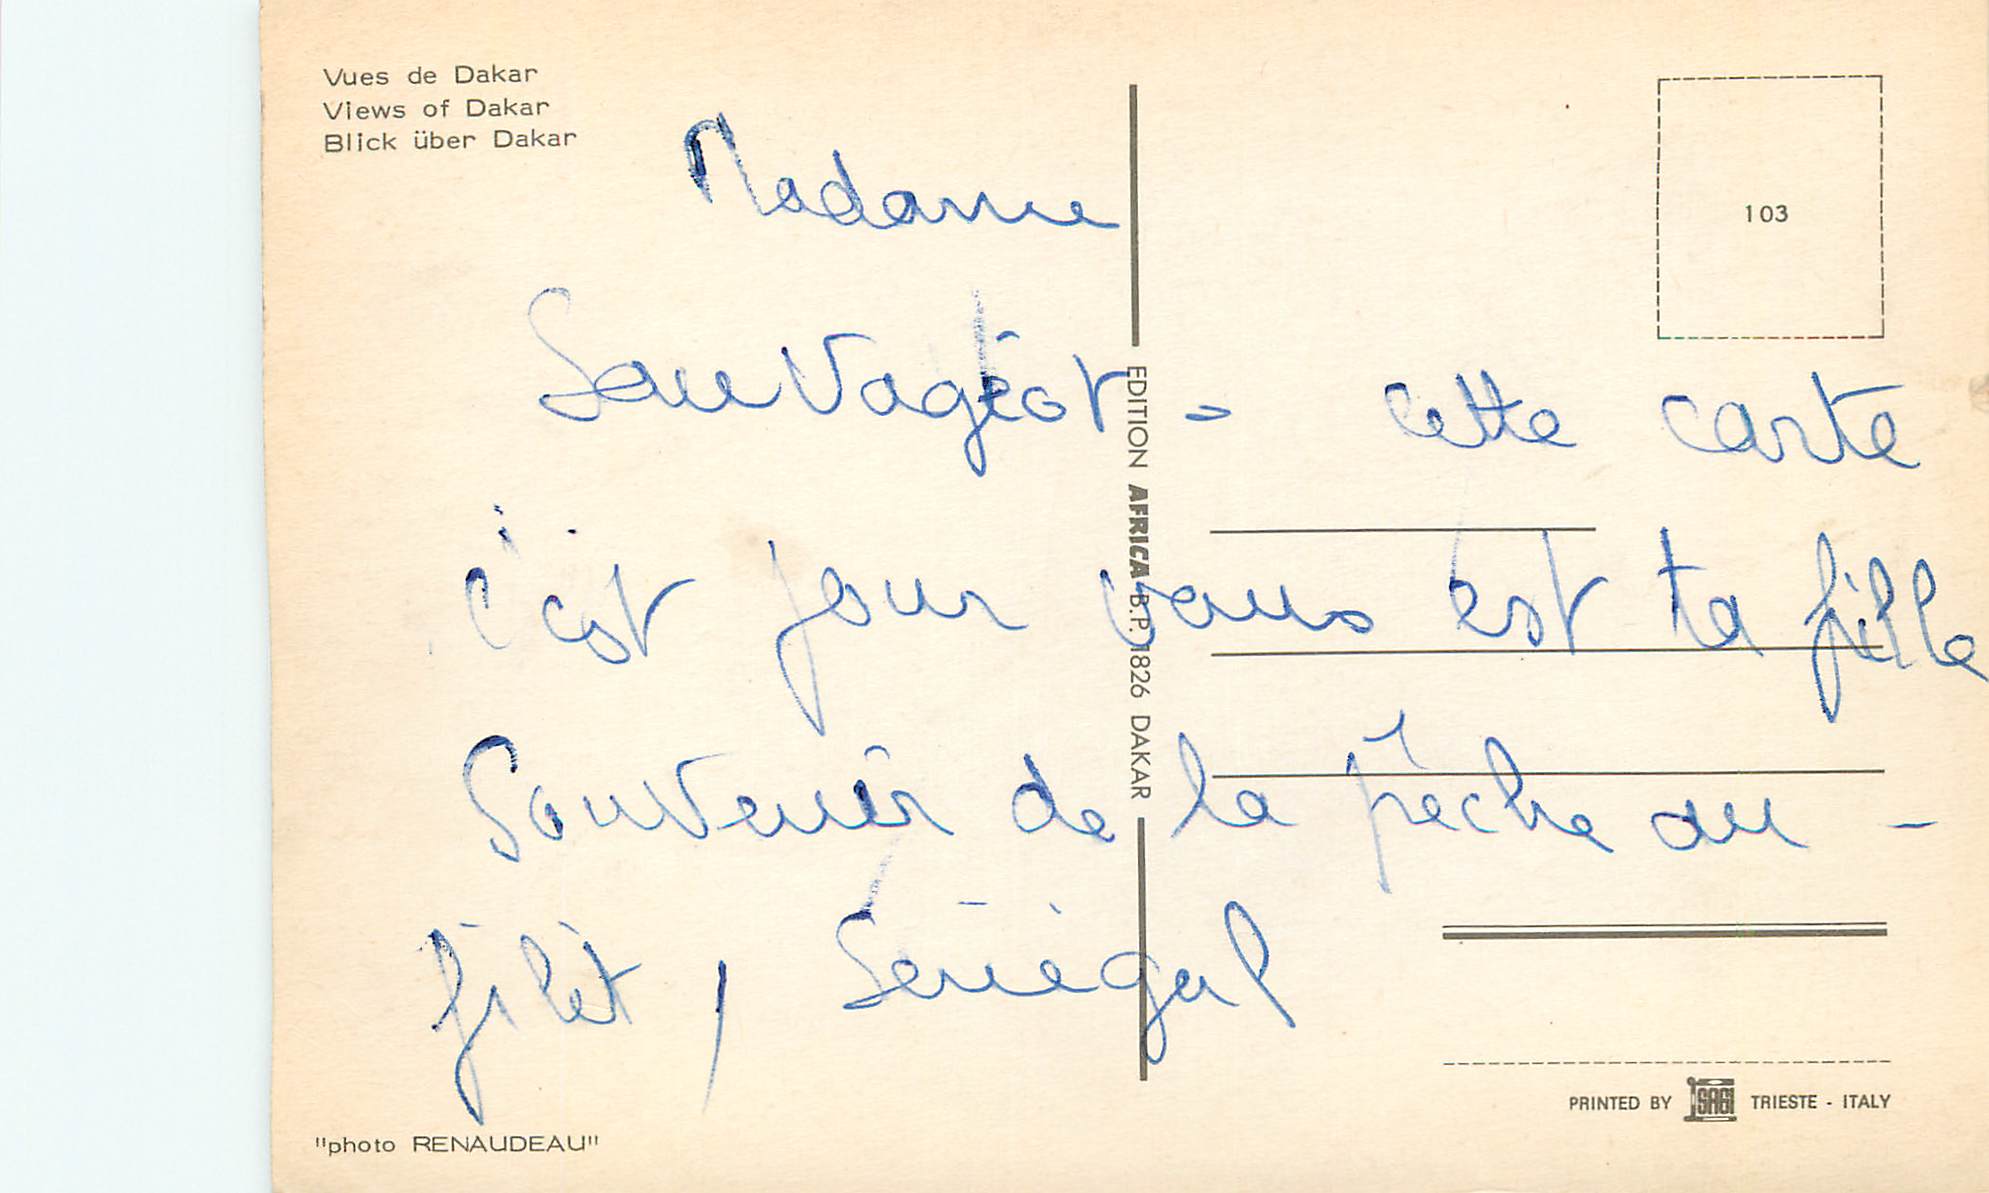 Vues de Dakar
Views of Dakar
Blick über Dakar
103
Madame
Sauvagéot = cette carte
c'est pour vous est ta fille
Souvenir de la pêche au -
filèt, Sénégal
EDITION AFRICA B.P. 1826 DAKAR
"photo RENAUDEAU"
PRINTED BY SAGI TRIESTE - ITALY